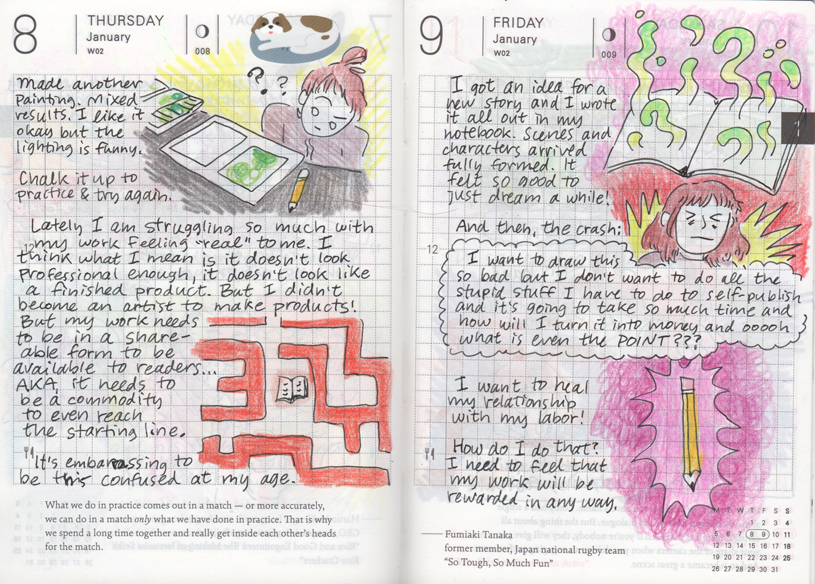 8
THURSDAY
January
W02
008
made another
painting. Mixed
results. I like it
okay but the
lighting is funny.
Chalk it up to
practice & try again.
Lately I am struggling so much with
my work feeling "real" to me. I
think what I mean is it doesn't look
professional enough, it doesn't look like
a finished product. But I didn't
become an artist to make products!
But my work needs
to be in a share-
able form to be
available to readers...
AKA, it needs to
be a commodity
to even reach
the starting line.
It's embarrassing to
be this confused at my age.
What we do in practice comes out in a match — or more accurately,
we can do in a match only what we have done in practice. That is why
we spend a long time together and really get inside each other's heads
for the match.
9
FRIDAY
January
W02
009
1
I got an idea for a
new story and I wrote
it all out in my
notebook. Scenes and
characters arrived
fully formed. It
felt so good to
just dream a while!
And then, the crash:
12
I want to draw this
so bad but I don't want to do all the
stupid stuff I have to do to self-publish
and it's going to take so much time and
how will I turn it into money and ooooh
what is even the POINT???
I want to heal
my relationship
with my labor!
How do I do that?
I need to feel that
my work will be
rewarded in any way.
Fumiaki Tanaka
former member, Japan national rugby team
"So Tough, So Much Fun"
M T W T F S S
1 2 3 4
5 6 7 8 9 10 11
12 13 14 15 16 17 18
19 20 21 22 23 24 25
26 27 28 29 30 31